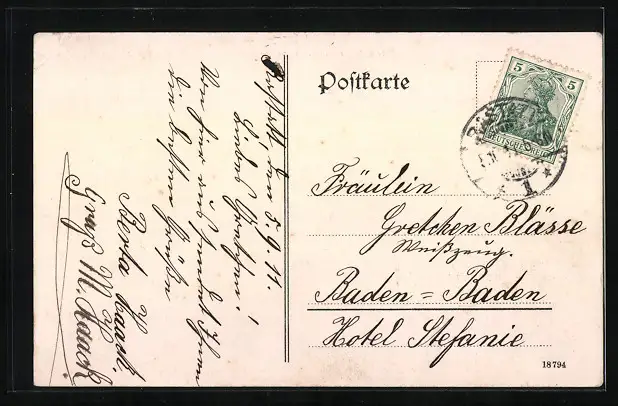 Rastatt, den 5.9.11.
Liebes Gretchen!
Von hier aus sendet Ihnen
die besten Grüße
Berta Haack
Gruß M. Haack
Postkarte
5 5
DEUTSCHES REICH
Fräulein
Gretchen Blässe
Weißzeug.
Baden=Baden
Hotel Stefanie
18794